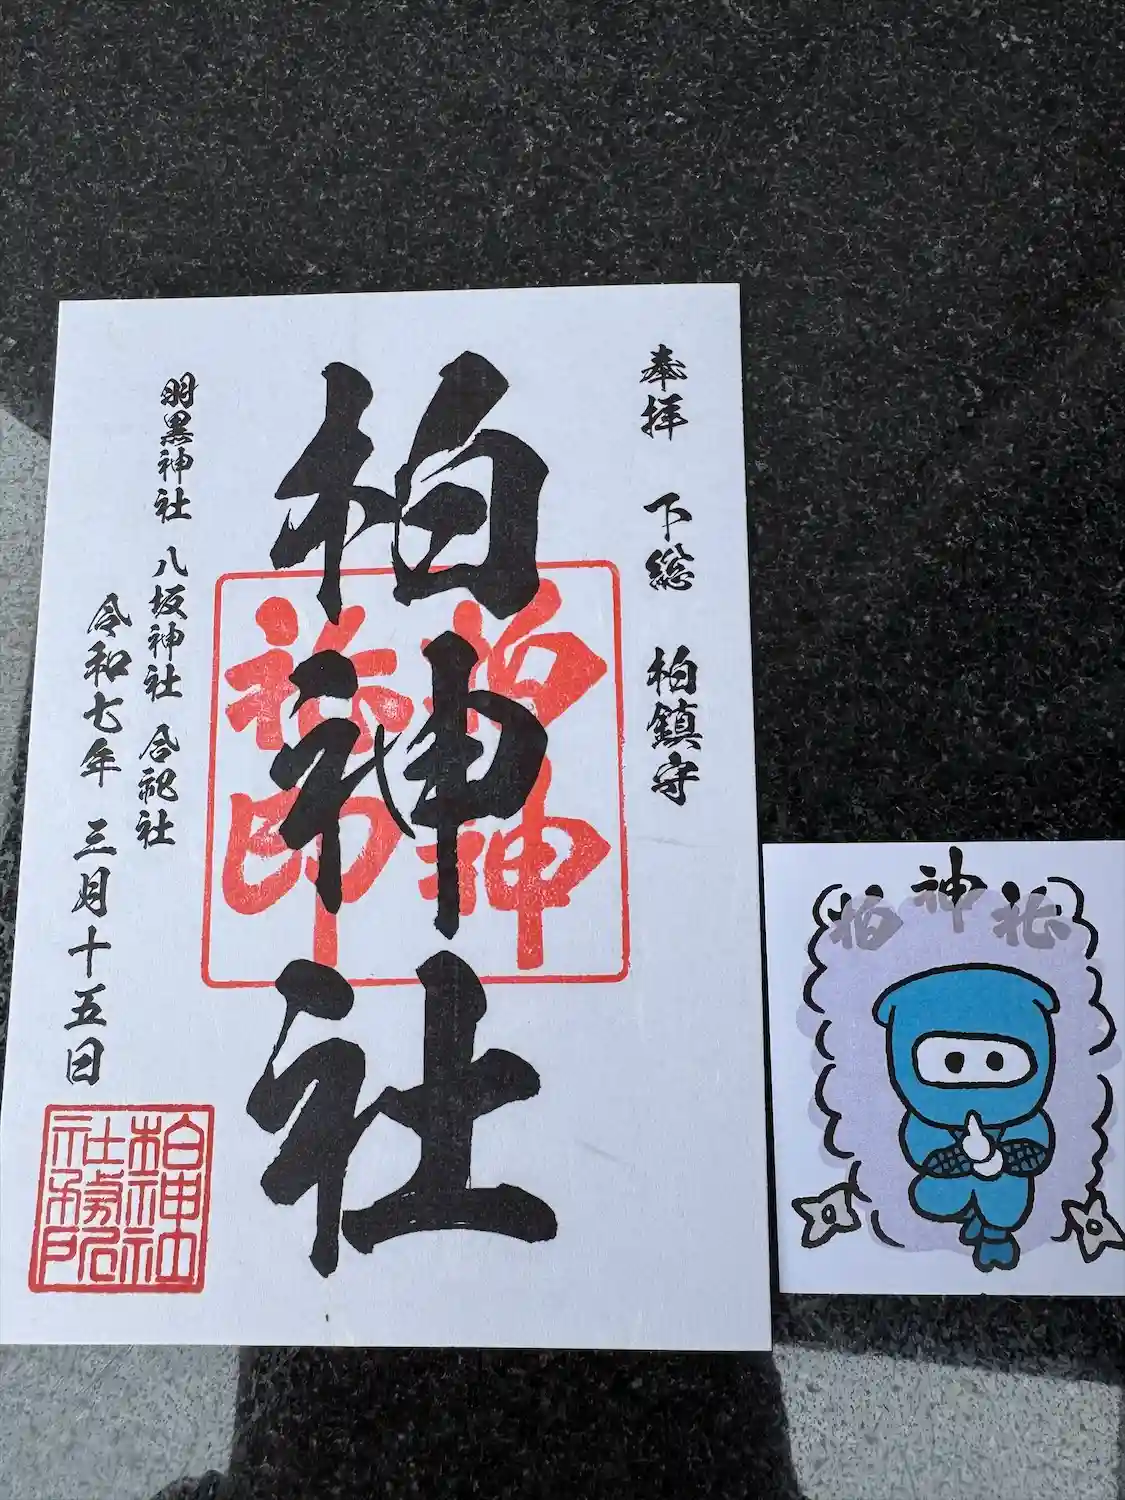 奉拝 下総 柏鎮守
柏神社
羽黒神社 八坂神社 合祀社
令和七年 三月十五日
柏神
社印
柏神社
社務所
柏神社